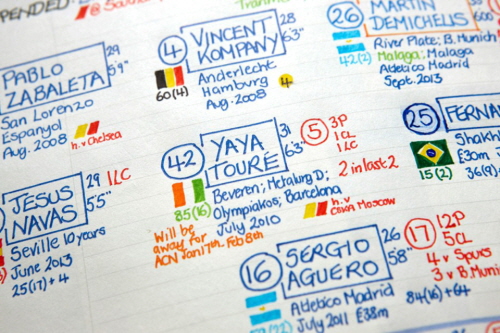 PENDED:
29
PABLO
ZABALETA
5'9"
San Lorenzo
Espanyol
Aug. 2008
h.v Chelsea
4
VINCENT
KOMPANY
28
6'3"
60(4)
Anderlecht
Hamburg
Aug. 2008
4
26
MARTIN
DEMICHELIS
42(2)
River Plate; B. Munich
Malaga; Malaga
Atletico Madrid
Sept. 2013
42
YAYA
TOURÉ
31
6'3"
5
3P
1CL
1LC
2 in last 2
85(16)
Beveren; Metalurg D;
Olympiakos; Barcelona
July 2010
h.v
CSKA Moscow
Will be
away for
ACN Jan 17th Feb 8th
25
FERNA
15(2)
Shakh
£30m J
36(9)
JESUS
NAVAS
29
1LC
5'5"
Seville 10 years
June 2013
25(17)+4
16
SERGIO
AGUERO
26
5'8"
17
12P
5CL
4 v Spurs
3 v B. Mun
Atletico Madrid
July 2011 £38m
84(16)+64